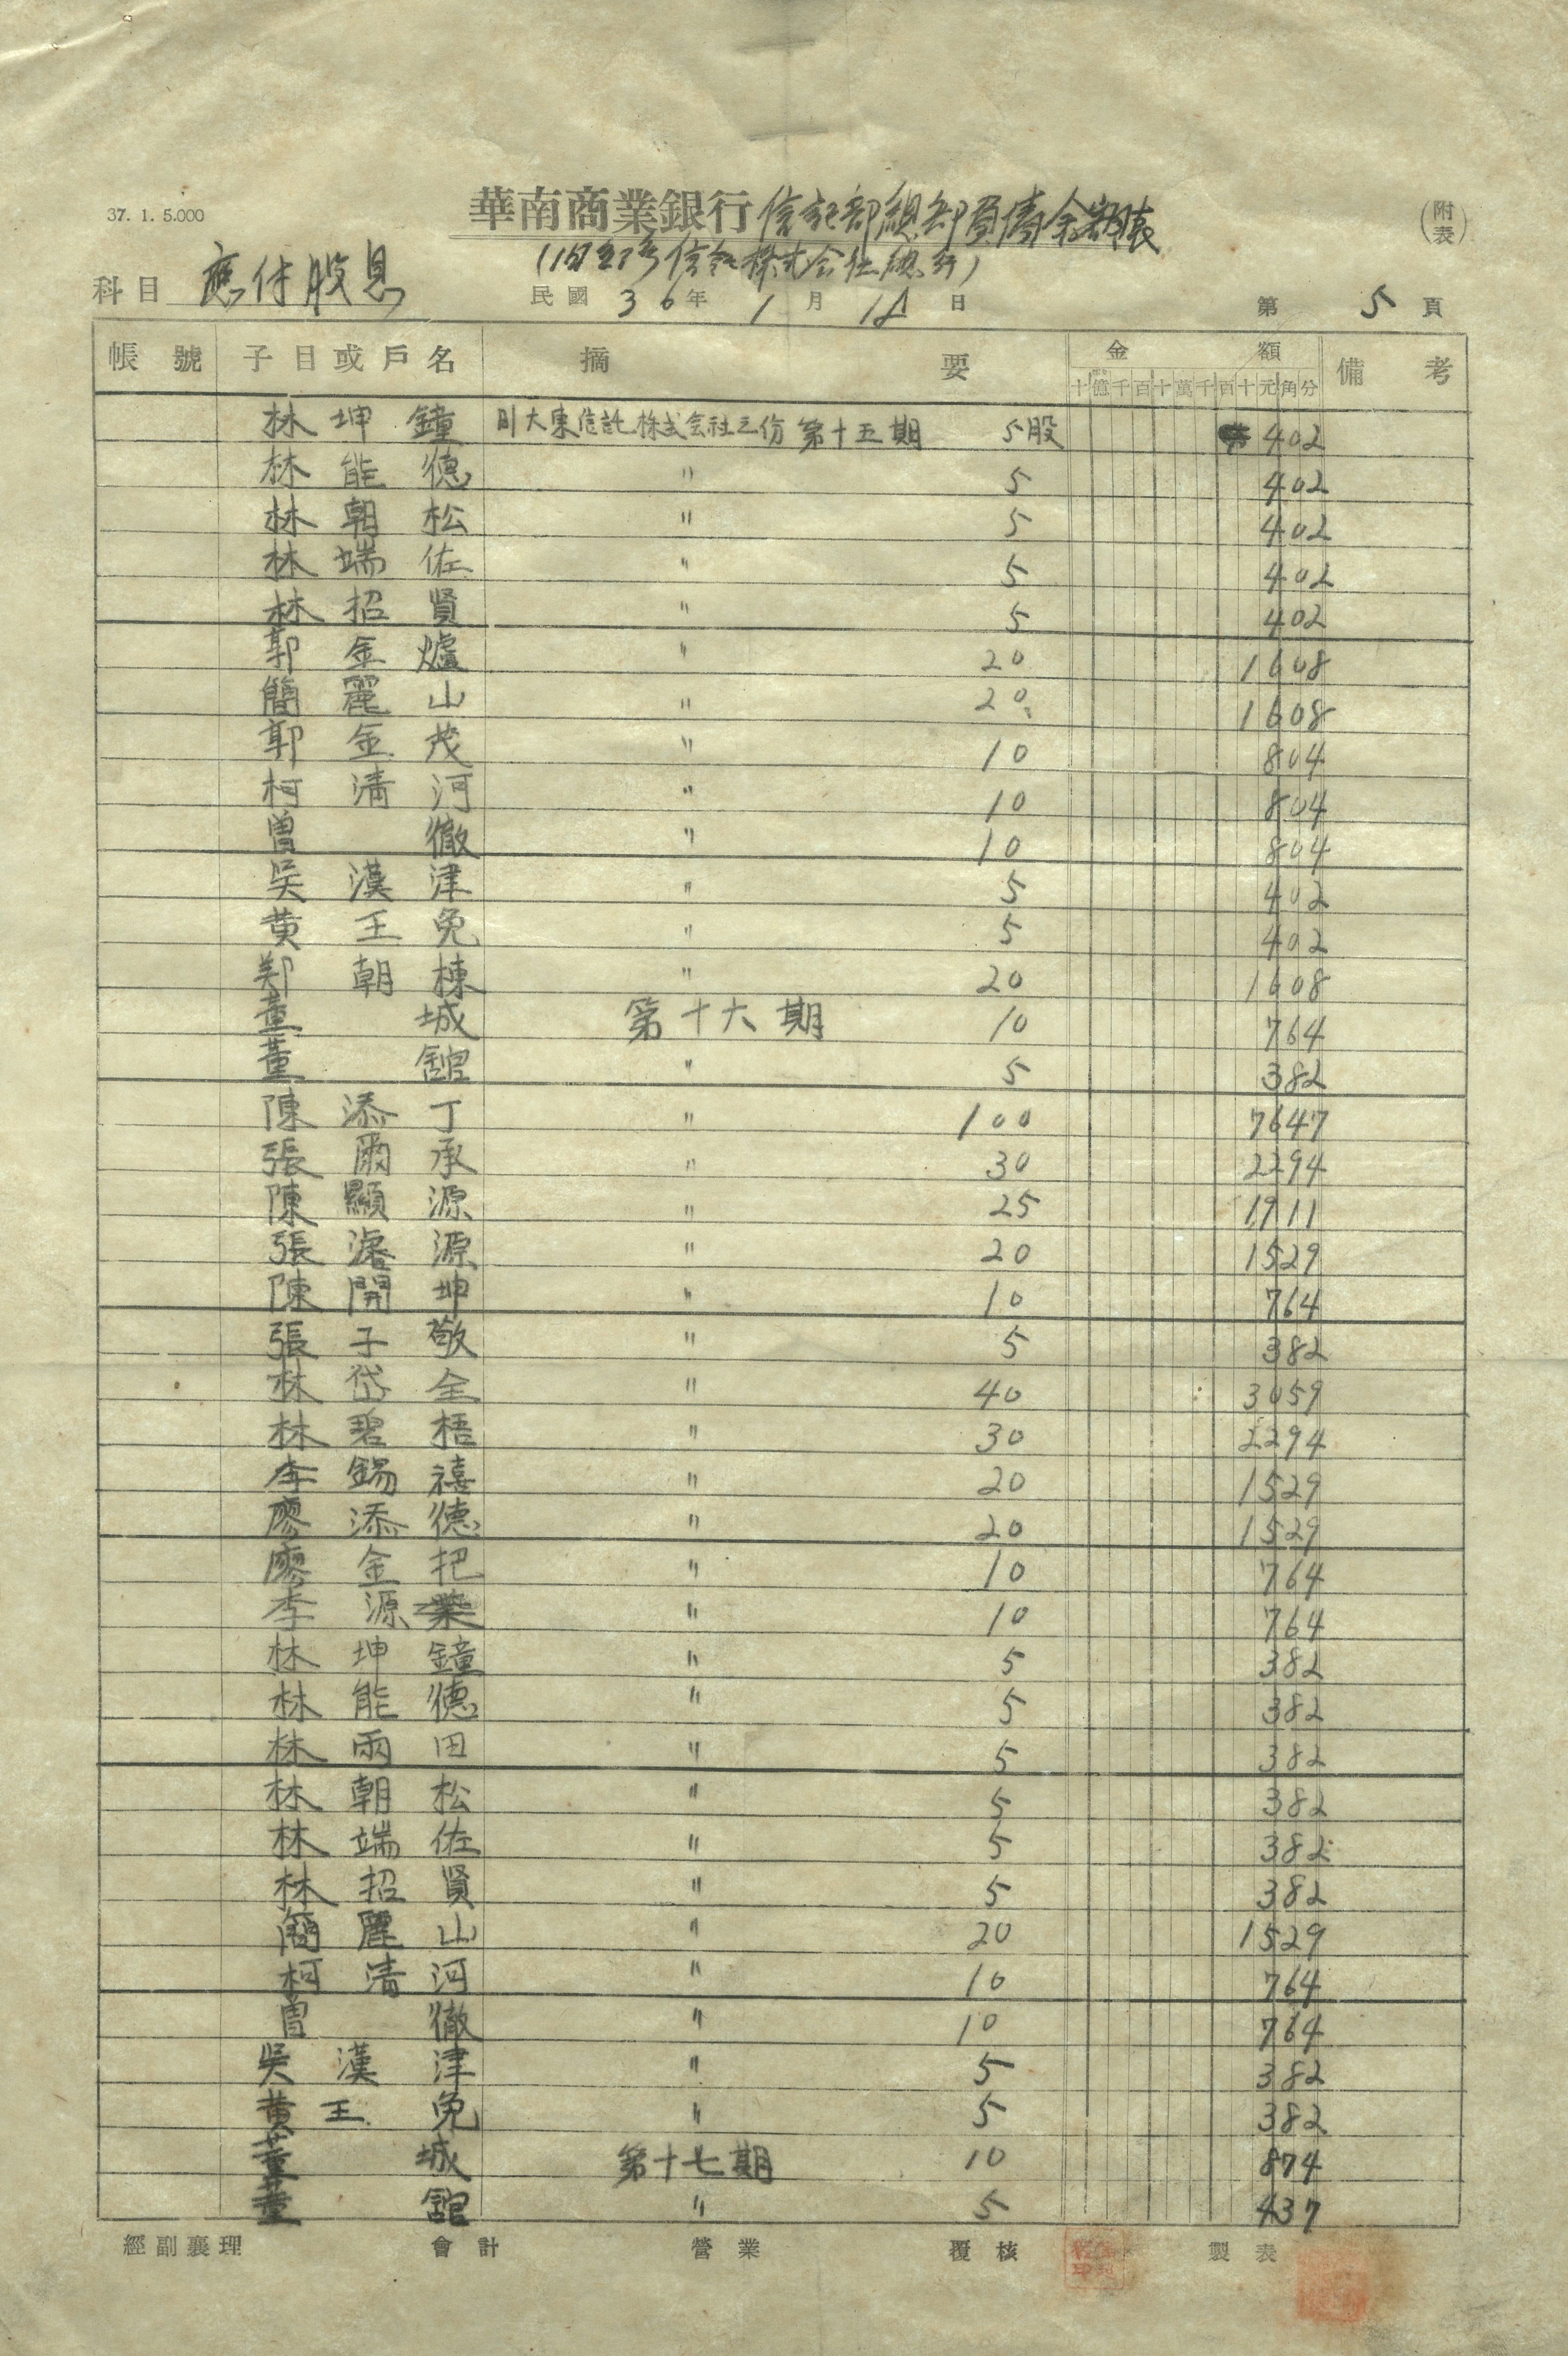 37. 1. 5.000
華南商業銀行信託部總部負債余額表
(附表)
科目 應付股息
民國 36年 1月 15日
第 5 頁
帳號 子目或戶名 摘要 金額 備考
十億千百十萬千百十元角分
林坤鐘 旧大東信託株式会社之份 第十五期 5股 402
林能德 〃 5 402
林朝松 〃 5 402
林端佐 〃 5 402
林招賢 〃 5 402
郭金爐 〃 20 1608
簡麗山 〃 20 1608
郭金茂 〃 10 804
柯清河 〃 10 804
曾徹 〃 10 804
吳漢津 〃 5 402
黄王免 〃 5 402
郑朝棟 〃 20 1608
董城 第十六期 10 764
董舘 〃 5 382
陳添丁 〃 100 7647
張爾承 〃 30 2294
陳顯源 〃 25 1911
張濬源 〃 20 1529
陳開坤 〃 10 764
張子敬 〃 5 382
林岱全 〃 40 3059
林碧梧 〃 30 2294
李錫禧 〃 20 1529
廖添德 〃 20 1529
廖金把 〃 10 764
李源業 〃 10 764
林坤鐘 〃 5 382
林能德 〃 5 382
林雨田 〃 5 382
林朝松 〃 5 382
林端佐 〃 5 382
林招賢 〃 5 382
簡麗山 〃 20 1529
柯清河 〃 10 764
曾徹 〃 10 764
吳漢津 〃 5 382
黄王免 〃 5 382
董城 第十七期 10 874
董舘 〃 5 437
經副襄理 會計 營業 覆核 製表